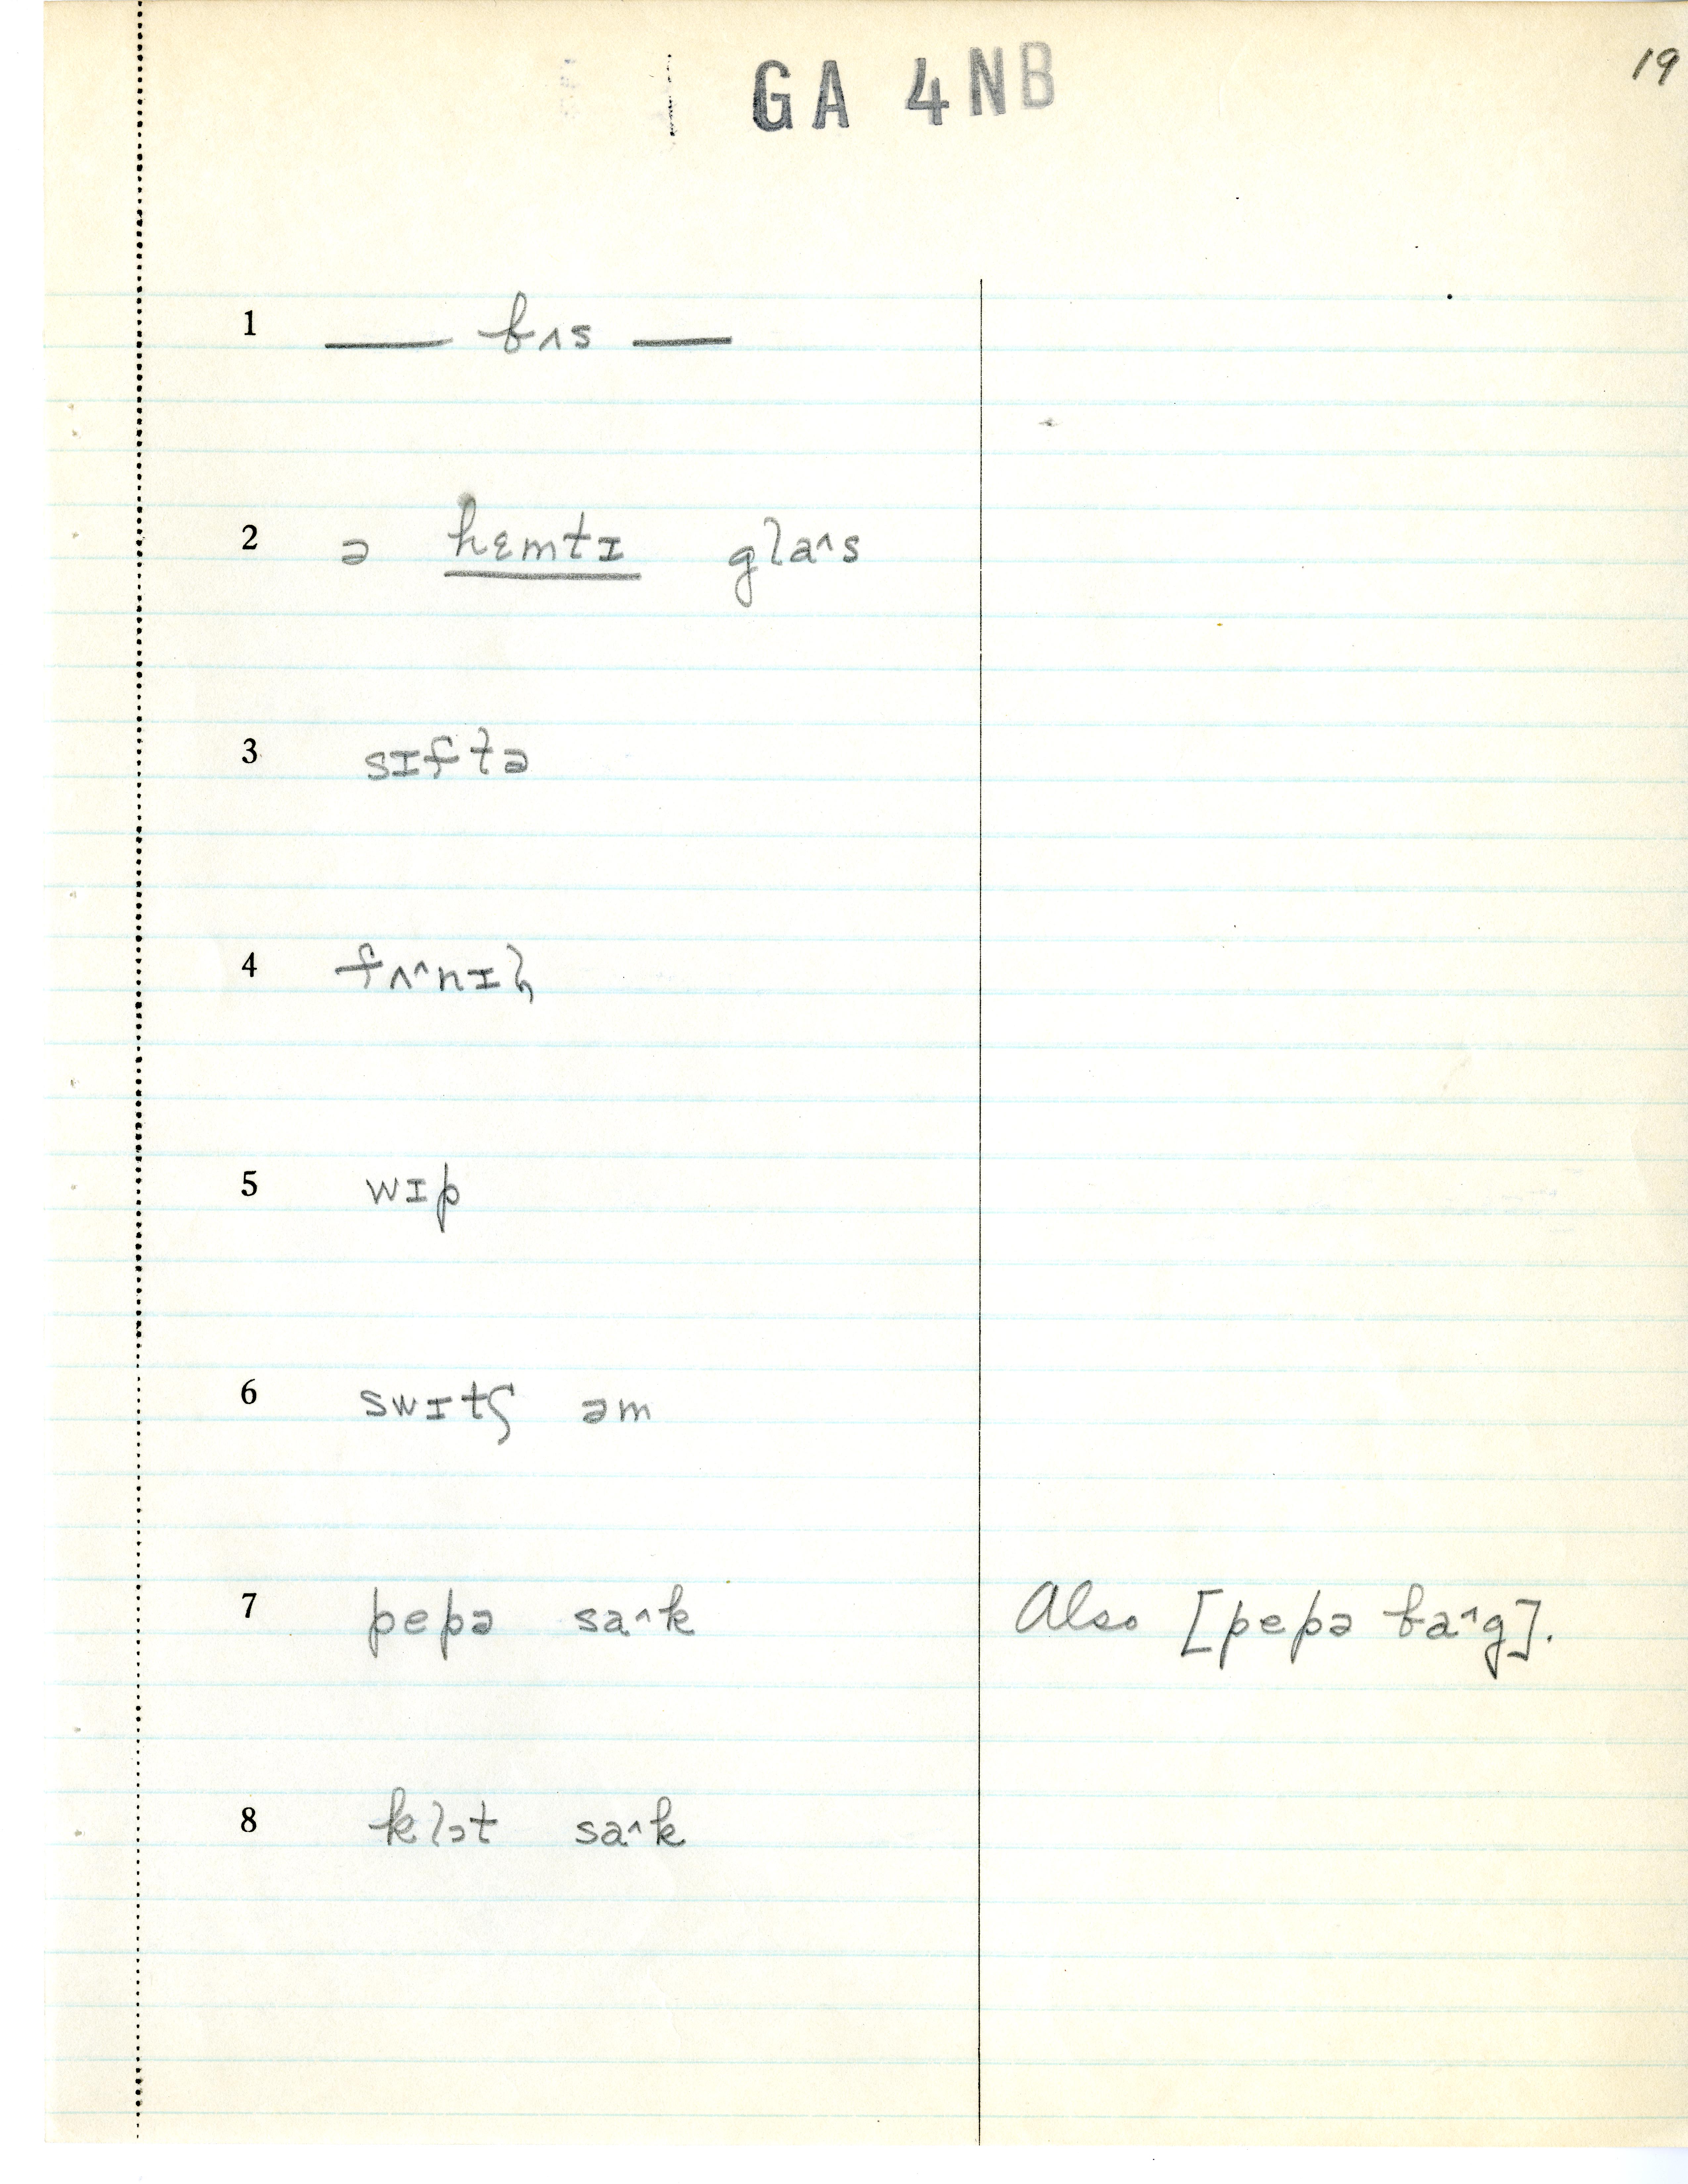 GA 4NB
19
1 —— bʌs ——
2 ə hɛmtɪ glaˆs
3 sɪftə
4 fʌˆnɪɫ
5 wɪp
6 swɪtʃ əm
7 pepə saˆk Also [pepə baˆg].
8 klɔt saˆk